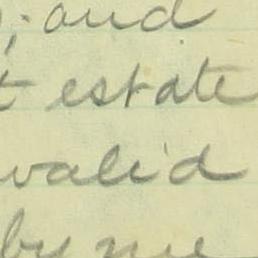 ; and
t estate
valid
by me